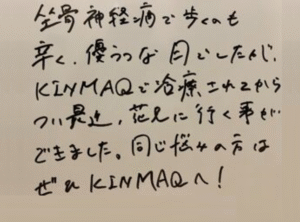 坐骨神経痛で歩くのも
辛く、優うつな日でしたが、
KINMAQで治療されてから
つい最近、花見に行く事が
できました。同じ悩みの方は
ぜひKINMAQへ!